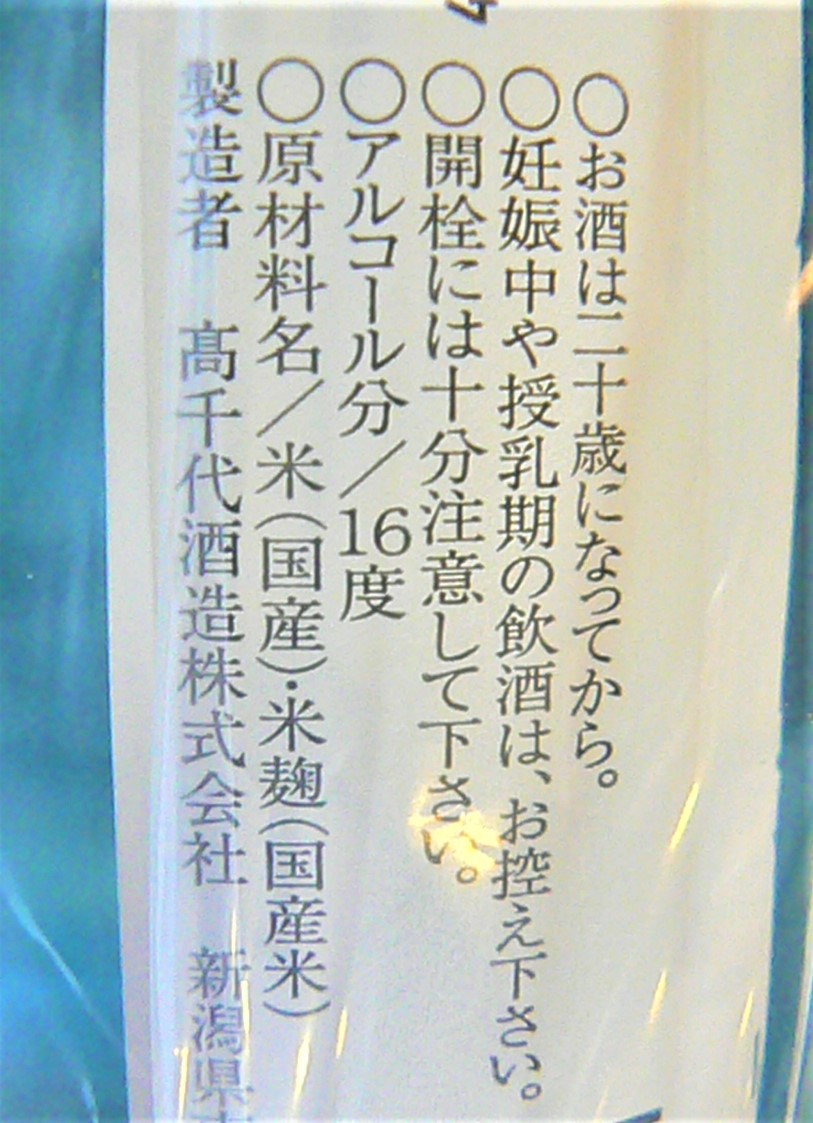 ○お酒は二十歳になってから。
○妊娠中や授乳期の飲酒は、お控え下さい。
○開栓には十分注意して下さい。
○アルコール分／16度
○原材料名／米（国産）・米麹（国産米）
製造者　髙千代酒造株式会社　新潟県